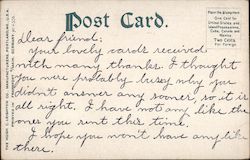 Post Card.
Dear friend;
Your lovely cards received
with many thanks. I thought
you were probably busy why you
didnt answer any sooner, so it is
all right. I have not any like the
ones you sent this time.
I hope you won't have any like
these.
Place the Stamp here
One Cent for
United States
Cuba, Canada and
Mexico
Two Cents
For Foreign